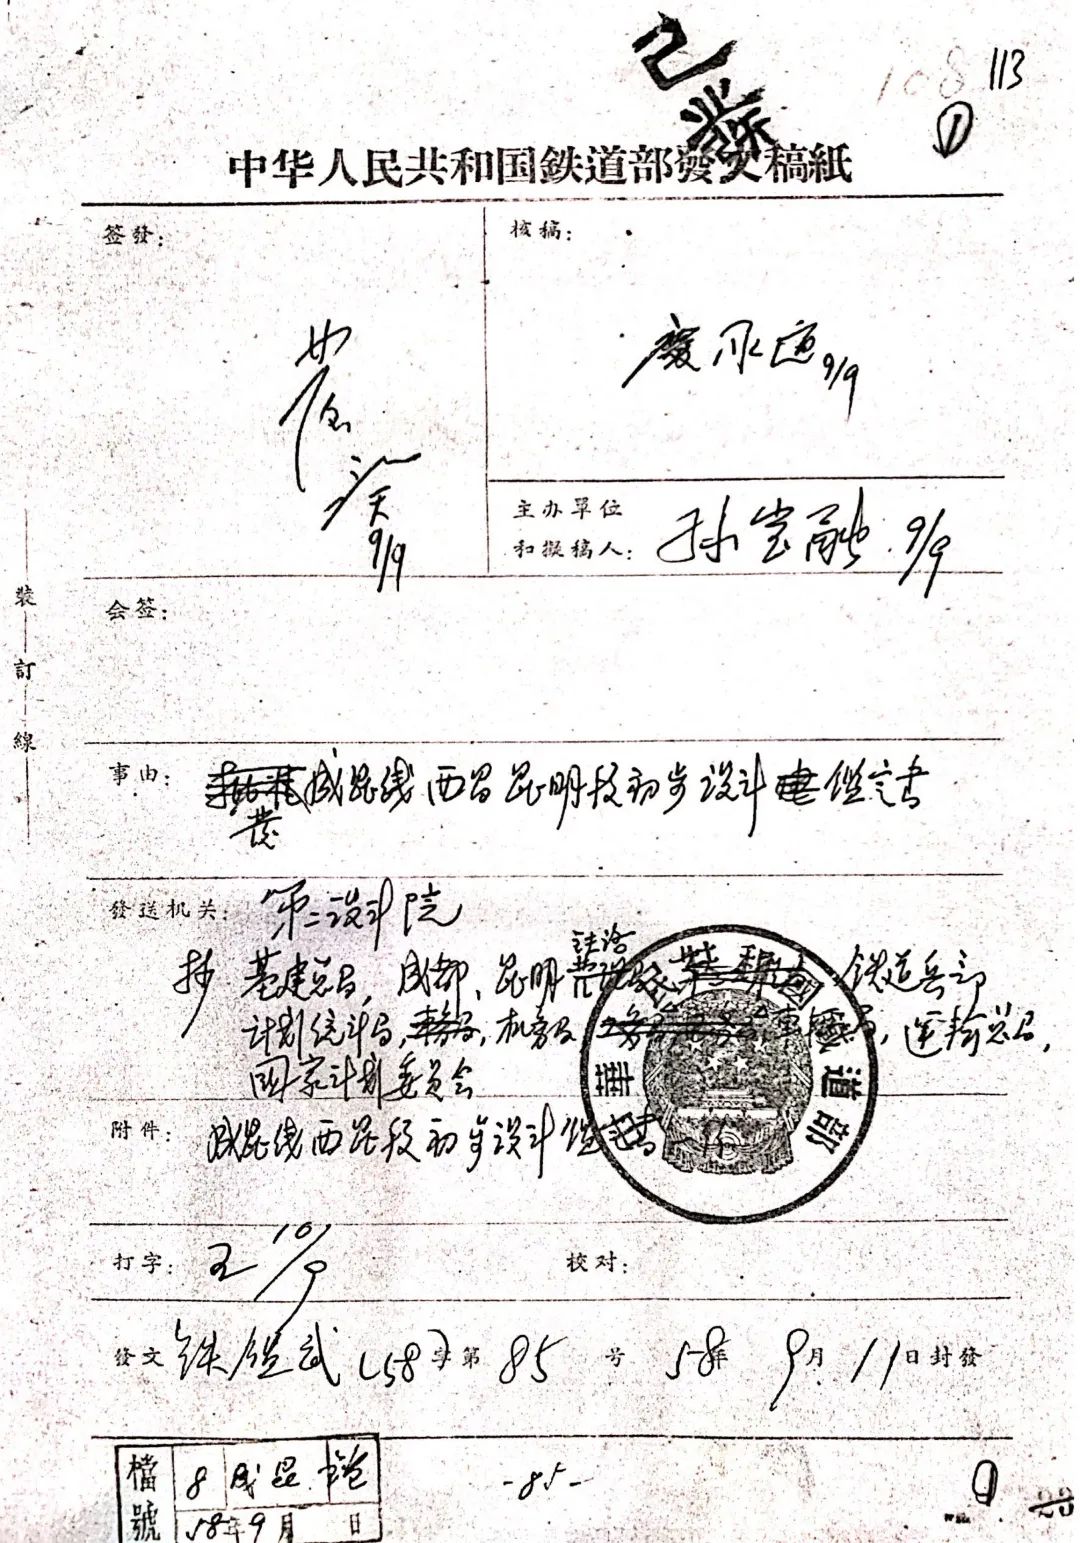 已 
108 113
①
中华人民共和国鉄道部發文稿紙
签發:
核稿:
9/9
9/9
主办單位
和擬稿人: 孙宝融 9/9
会签:
事由: 成昆线西昌昆明段初步设计鑑定书
發
發送机关: 第二设计院
抄 基建总局, 成都、昆明 铁道兵部
计划统计局, 机务局 运输总局,
国家计划委员会
附件: 成昆线西昆段初步设计鑑定书
打字: 王 10/9
校对:
發文 铁鑑武(58)字第85号 58年9月11日封發
檔號 8 成昆 鑑
58年9月 日
-85-
23
裝訂線
中華人民共和國鐵道部